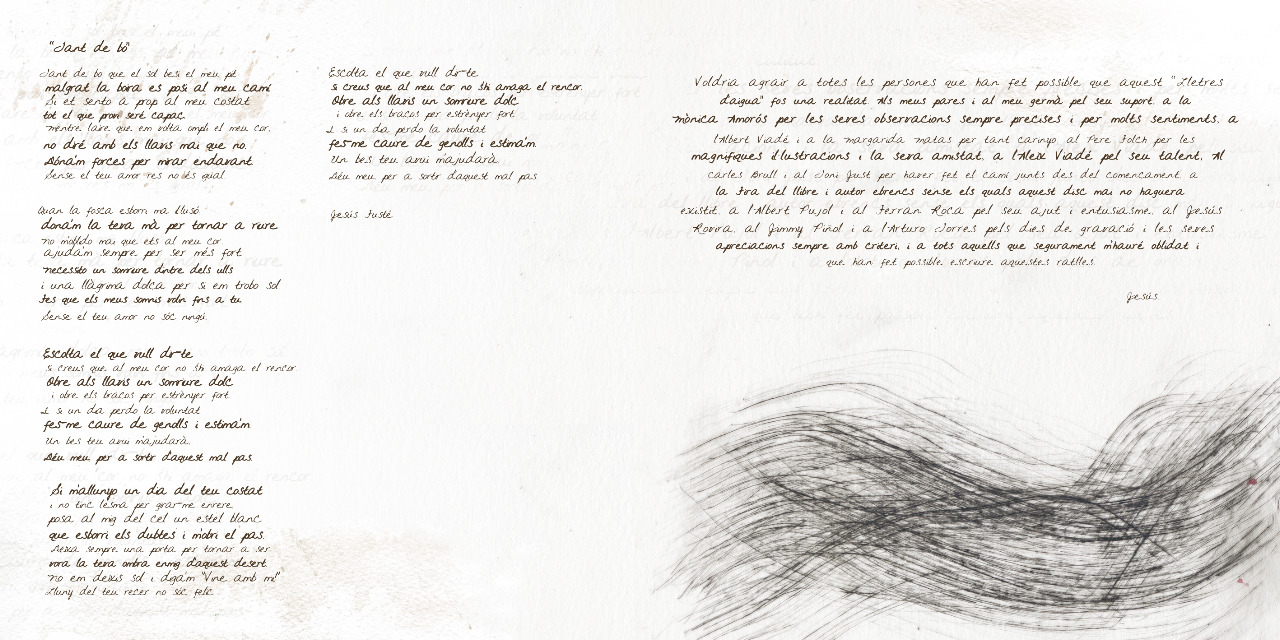 "Tant de bo"
Tant de bo que el sol besi el meu pit
malgrat la boira es posi al meu camí
Si et sento a prop al meu costat
tot el que provi seré capaç.
Mentre l'aire que em volta ompli el meu cor,
no diré amb els llavis mai que no.
Dóna'm forces per mirar endavant
Sense el teu amor res no és igual
Quan la fosca esborri ma il·lusió
dona'm la teva mà per tornar a riure
No m'oblido mai que ets al meu cor
ajuda'm sempre per ser més fort
necessito un somriure dintre dels ulls
i una llàgrima dolça per si em trobo sol
Fes que els meus somnis volin fins a tu
Sense el teu amor no sóc ningú.
Escolta el que vull dir-te
si creus que al meu cor no s'hi amaga el rencor
Obre als llavis un somriure dolç
i obre els braços per estrènyer fort
I si un dia perdo la voluntat
fes-me caure de genolls i estima'm
Un bes teu avui m'ajudarà.
Déu meu per a sortir d'aquest mal pas.
Si m'allunyo un dia del teu costat
i no tinc l'esma per girar-me enrere
posa al mig del cel un estel blanc
que esborri els dubtes i m'obri el pas.
Deixa sempre una porta per tornar a ser
vora la teva ombra enmig d'aquest desert
No em deixis sol i diga'm "Vine amb mi"
Lluny del teu recer no sóc feliç.
Escolta el que vull dir-te
si creus que al meu cor no s'hi amaga el rencor.
Obre als llavis un somriure dolç
i obre els braços per estrènyer fort
I si un dia perdo la voluntat
fes-me caure de genolls i estima'm
Un bes teu avui m'ajudarà
Déu meu per a sortir d'aquest mal pas.
Jesús Fusté
Voldria agrair a totes les persones que han fet possible que aquest "Lletres
d'aigua" fos una realitat. Als meus pares i al meu germà pel seu suport, a la
Mònica Amorós per les seves observacions sempre precises i per molts sentiments, a
l'Albert Viadé i a la Margarida Matas per tant carinyo, al Pere Folch per les
magnífiques il·lustracions i la seva amistat, a l'Aleix Viadé pel seu talent, Al
Carles Brull i al Joni Just per haver fet el camí junts des del començament, a
la Fira del llibre i autor ebrencs sense els quals aquest disc mai no haguera
existit, a l'Albert Pujol i al Ferran Roca pel seu ajut i entusiasme, al Jesús
Rovira, al Jimmy Piñol i a l'Arturo Torres pels dies de gravació i les seves
apreciacions sempre amb criteri, i a tots aquells que segurament m'hauré oblidat i
que han fet possible escriure aquestes ratlles.
Jesús